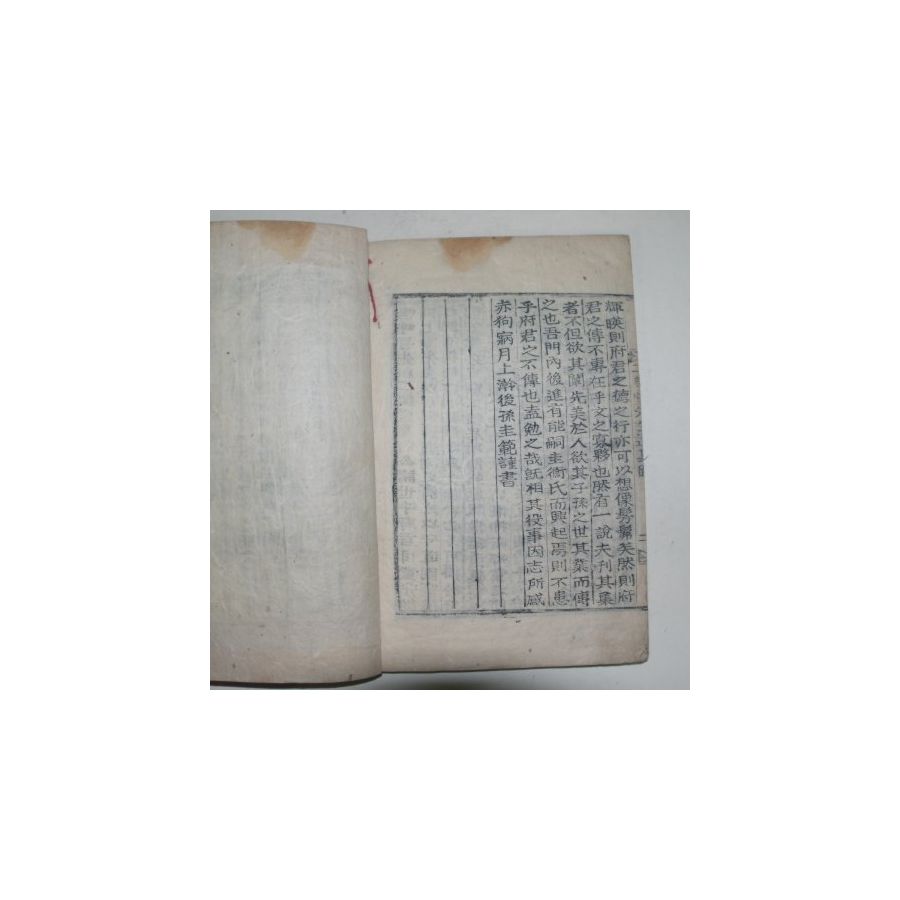 輝暎則府君之德之行亦可以想像髣髴矣然則府
君之傳不專在乎文之寡夥也然有一說夫刋其集
者不但欲其闡先美於人欲其子孫之世其業而傳
之也吾門內後進有能嗣圭衡氏而興起焉則不患
乎府君之不傳也盍勉之哉旣相其役事因志所感
赤狗寎月上澣後孫圭範謹書